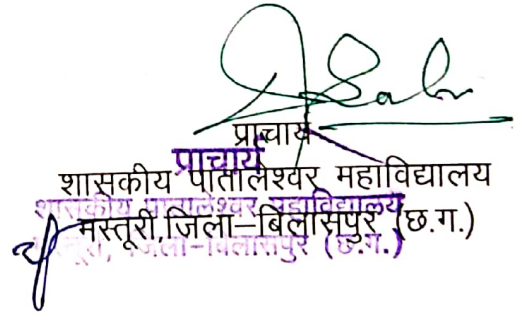 प्राचार्य
प्राचार्य
शासकीय पातालेश्वर महाविद्यालय
शासकीय पातालेश्वर महाविद्यालय
मस्तूरी,जिला–बिलासपुर (छ.ग.)
मस्तूरी, जिला–बिलासपुर (छ.ग.)